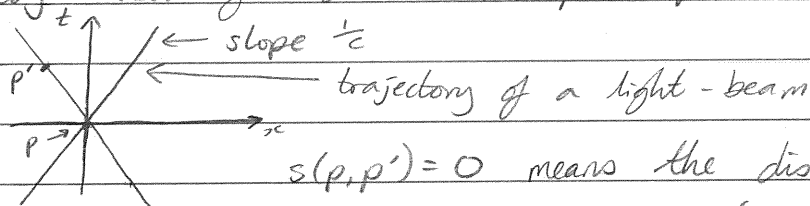 t
slope 1/c
p'
trajectory of a light-beam
x
p
s(p,p') = 0 means the dis